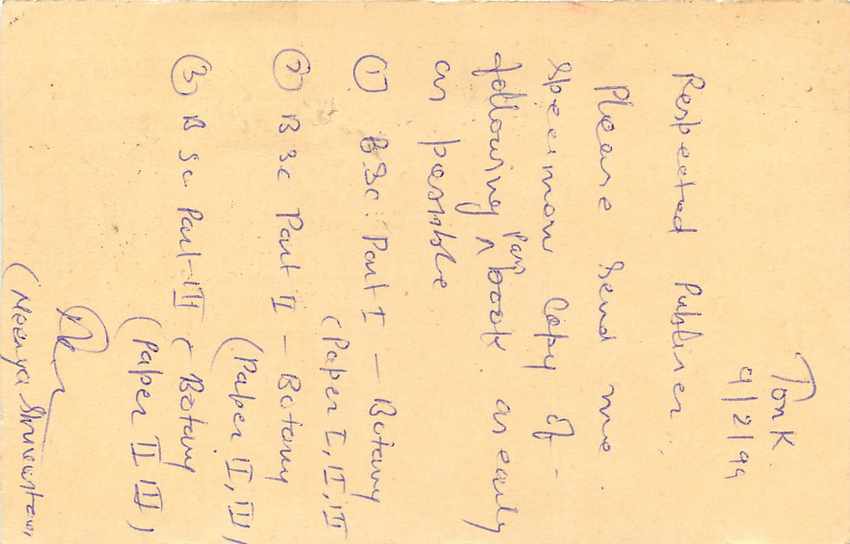 Tonk
9/2/99
Respected Publiner,
Please send me
specimen copy of
following Pass book as early
as possible
① BSc. Part I – Botany
(Paper I, II, III
② BSc Part II – Botany
(Paper II, III)
③ BSc. Part-III – Botany
(Paper II III)